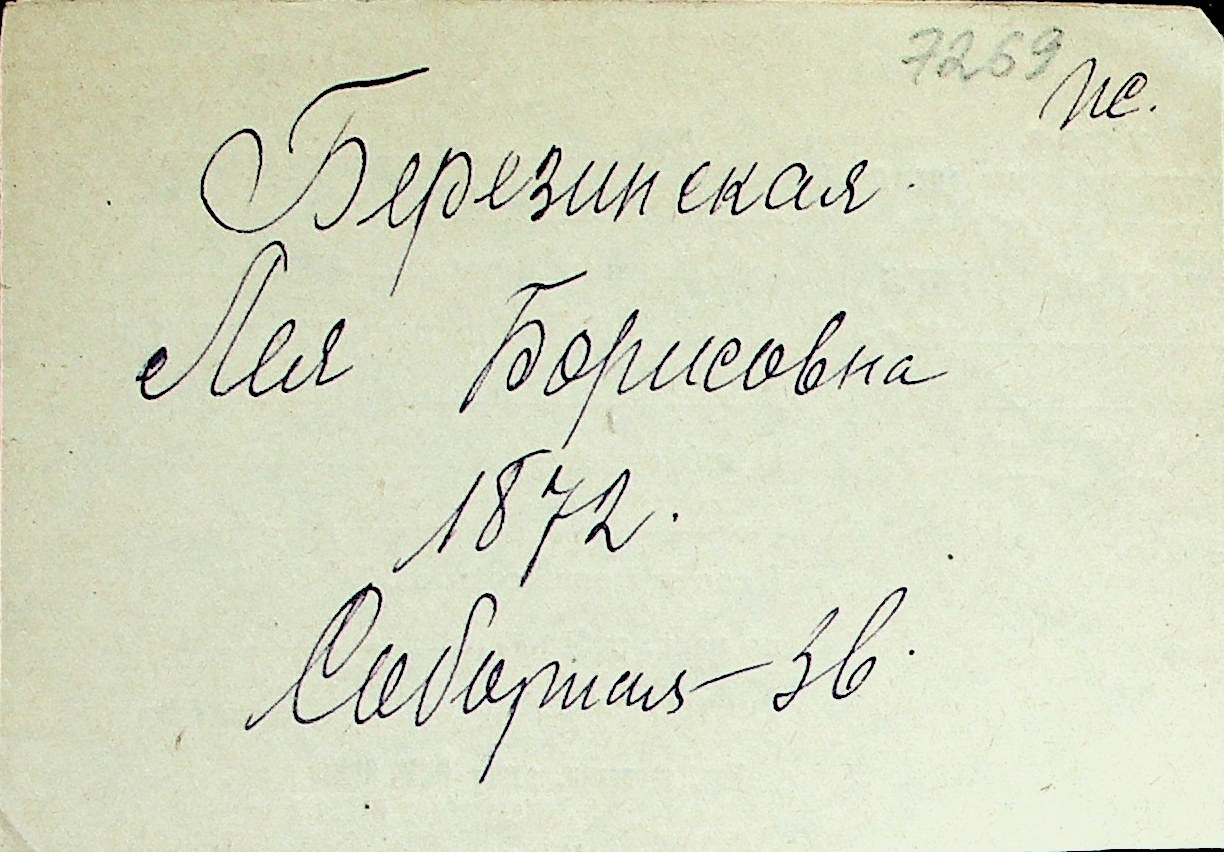 7269 пе.
Березинская
Лея Борисовна
1872.
Соборная – 36.